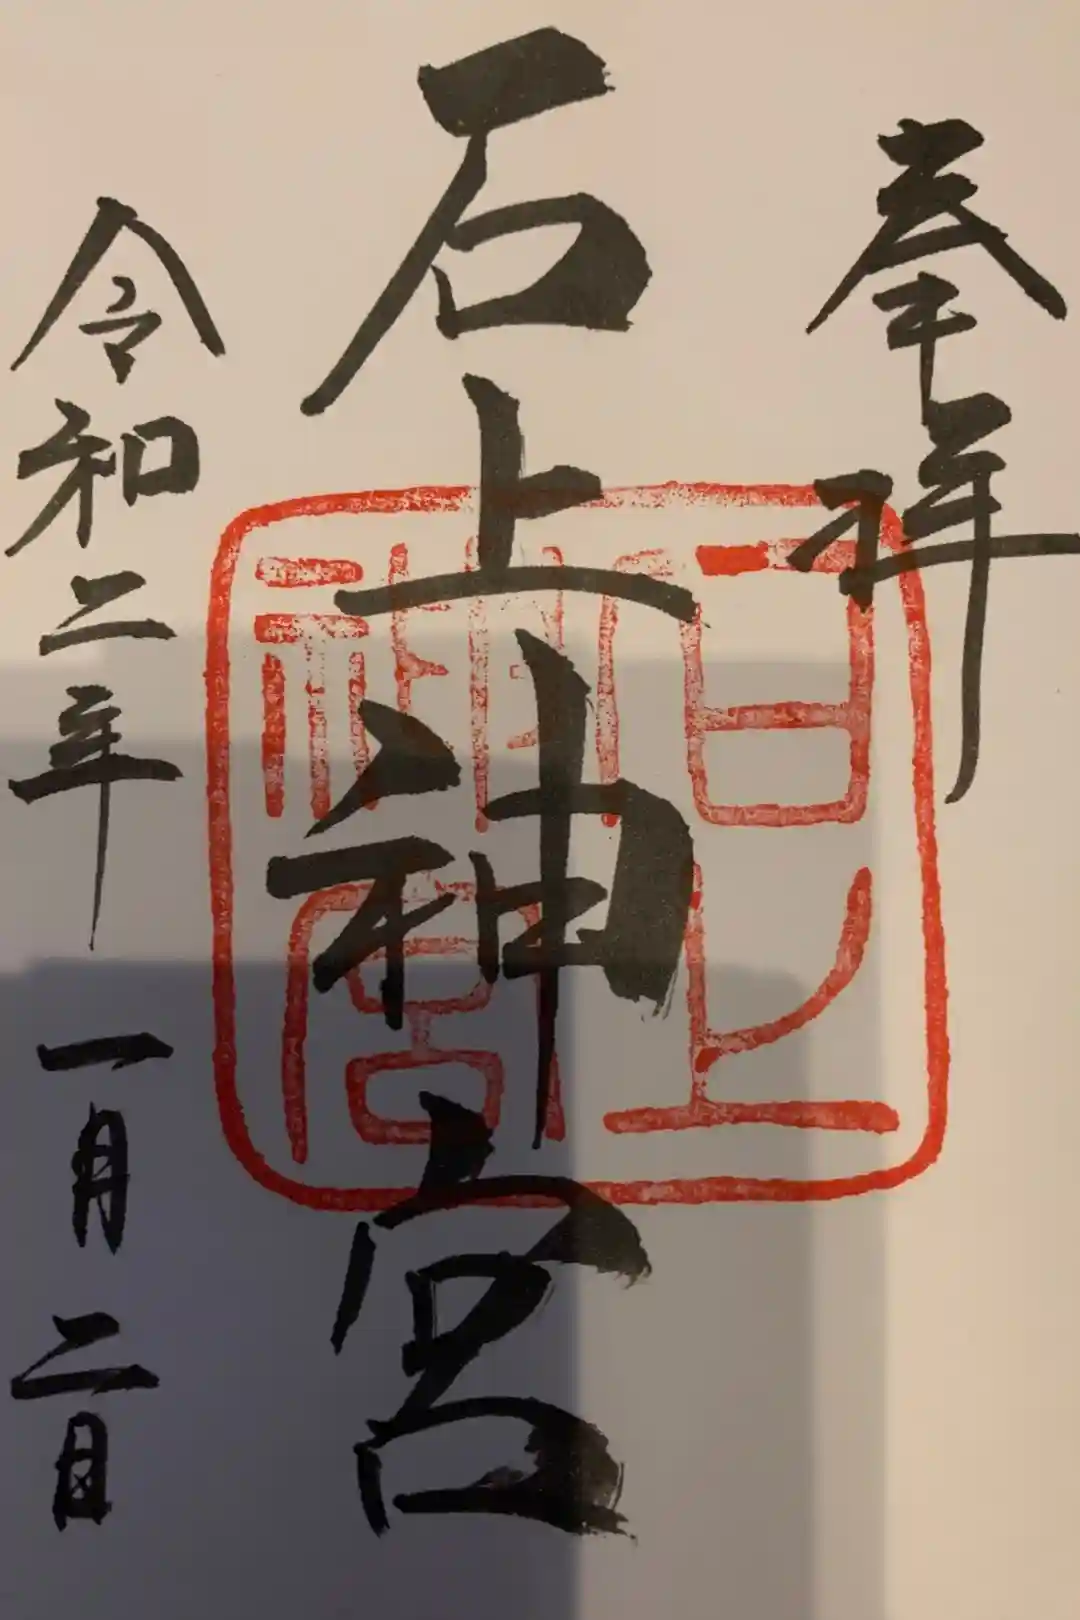 奉拝
石上神宮
石上
神宮
令和二年 一月 二日